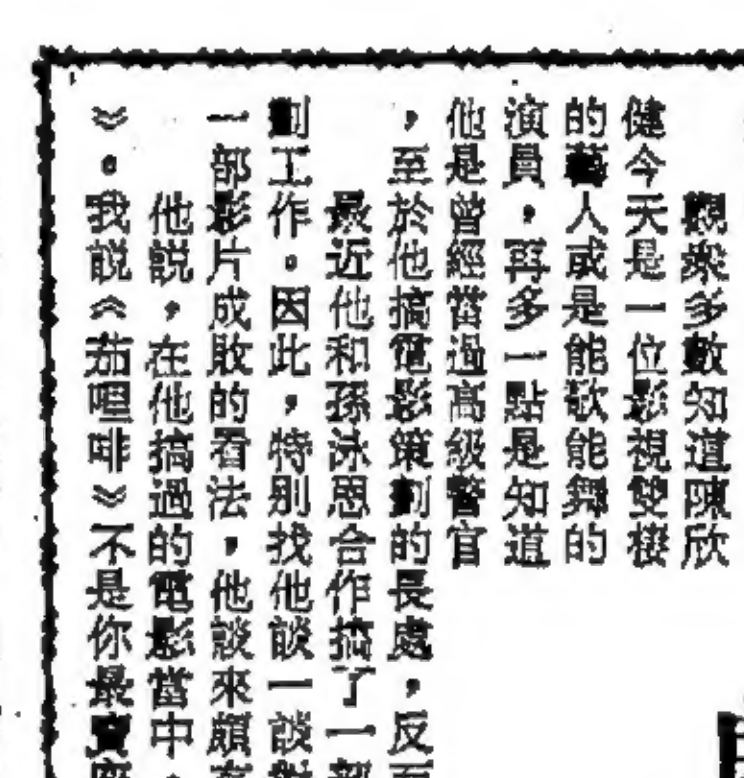 觀衆多數知道陳欣
健今天是一位影視雙棲
的藝人或是能歌能舞的
演員，再多一點是知道
他是曾經當過高級警官
，至於他搞電影策劃的長處，反而
最近他和孫泳恩合作搞了一部
劃工作。因此，特別找他談一談對
一部影片成敗的看法，他談來頗有
他說，在他搞過的電影當中，
》。我說《茄哩啡》不是你最賣座